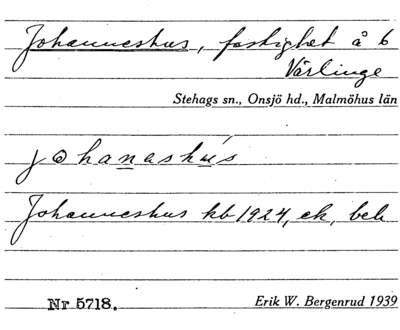 Johanneshus, fastighet å 6
Värlinge
Stehags sn., Onsjö hd., Malmöhus län
johanashús
Johanneshus kb 1924, ek, beb
Nr 5718. Erik W. Bergenrud 1939